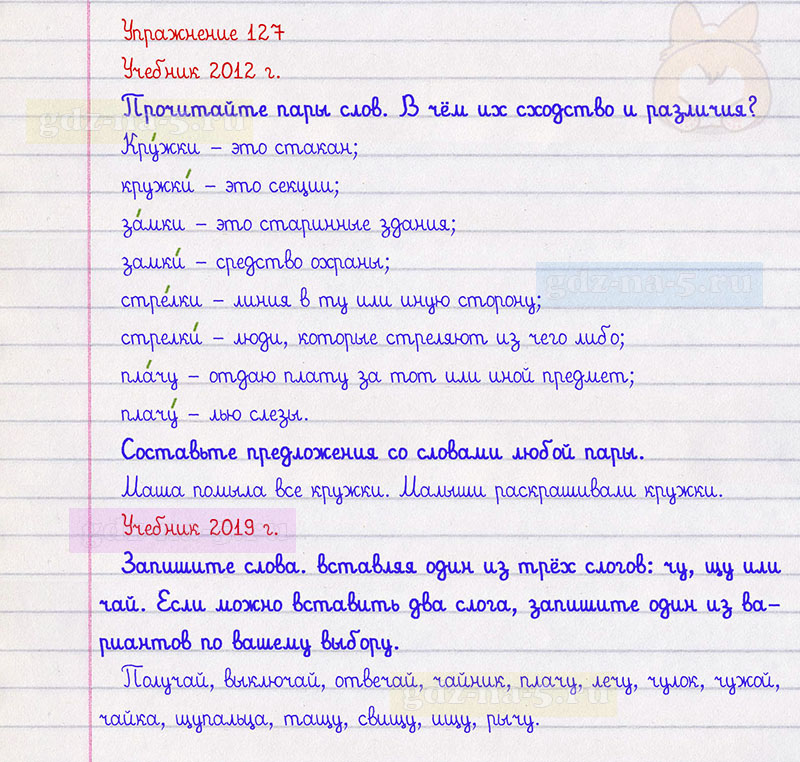 Упражнение 127
Учебник 2012 г.
Прочитайте пары слов. В чём их сходство и различия?
gdz-na-5.ru
Кру́жки – это стакан;
кружки́ – это секции;
за́мки – это старинные здания;
замки́ – средство охраны;
gdz-na-5.ru
стре́лки – линия в ту или иную сторону;
стрелки́ – люди, которые стреляют из чего либо;
пла́чу – отдаю плату за тот или иной предмет;
плачу́ – лью слезы.
Составьте предложения со словами любой пары.
Маша помыла все кружки. Малыши раскрашивали кружки.
Учебник 2019 г.
gdz-na-5.ru
Запишите слова. вставляя один из трёх слогов: чу, щу или
чай. Если можно вставить два слога, запишите один из ва-
риантов по вашему выбору.
Получай, выключай, отвечай, чайник, плачу, лечу, чулок, чужой,
gdz-na-5.ru
чайка, щупальца, тащу, свищу, ищу, рычу.